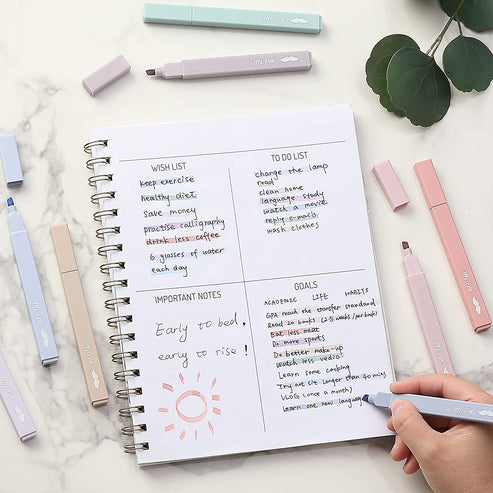 Mr. Pen
Mr. Pen
WISH LIST
keep exercise
healthy diet
save money
practise calligraphy
drink less coffee
6 glasses of water
each day
TO DO LIST
change the lamp
read
clean home
language study
watch a movie
reply e-mails
wash clothes
IMPORTANT NOTES
Early to bed,
early to rise!
GOALS
ACADEMIC LIFE HABITS
GPA reach the transfer standard
Read 20 books (2.5 weeks/per book)
Eat less meat
Do more sports
Do better make-up
watch less vedio
Learn some cooking
Try not sit longer than 60 mins
VLOG (once a month)
Learn one new language
Mr. Pen
Mr. Pen
Mr. Pen
Mr. Pen
Mr. Pen
Mr. Pen
Mr. Pen